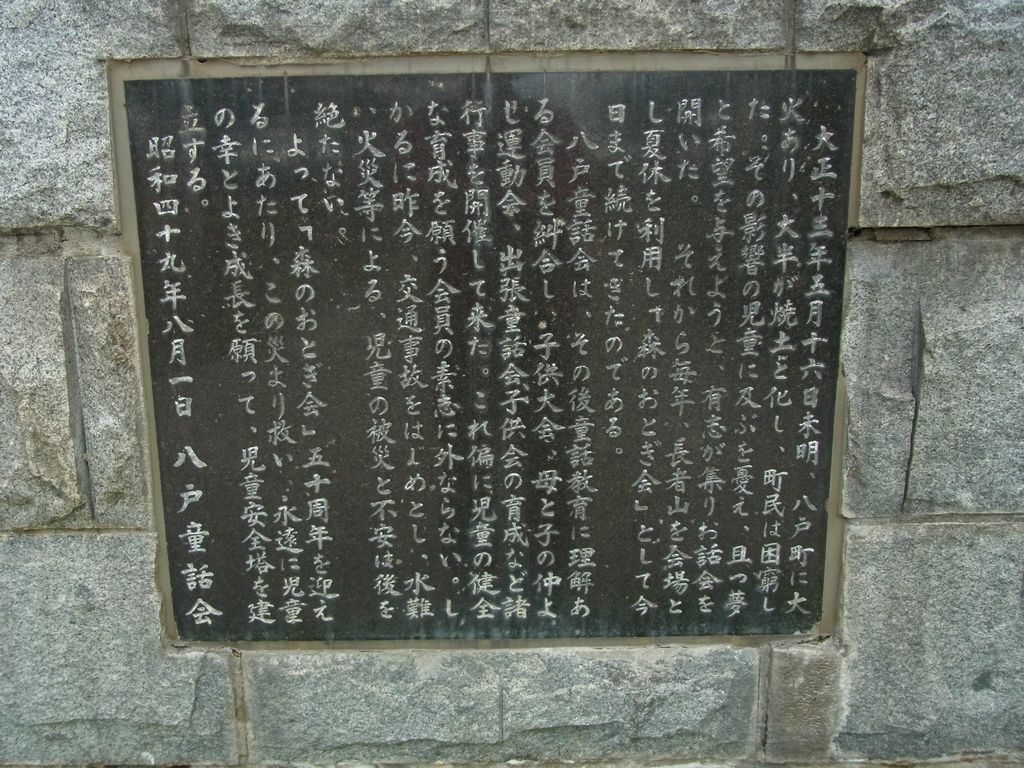 大正十三年五月十六日未明、八戸町に大
火あり、大半が焼土と化し、町民は困窮し
た。その影響の児童に及ぶを憂え、且つ夢
と希望を与えようと、有志が集りお話会を
開いた。それから毎年、長者山を会場と
し夏休を利用し「森のおとぎ会」として今
日まで続けてきたのである。
八戸童話会は、その後童話教育に理解あ
る会員を糾合し、子供大会、母と子の仲よ
し運動会、出張童話会、子供会の育成など諸
行事を開催して来た。これ偏に児童の健全
な育成を願う会員の素志に外ならない。し
かるに昨今、交通事故をはじめとし、水難
、火災等による、児童の被災と不安は後を
絶たない。
よって「森のおとぎ会」五十周年を迎え
るにあたり、この災より救い、永遠に児童
の幸とよき成長を願って、児童安全塔を建
立する。
昭和四十九年八月一日 八戸童話会